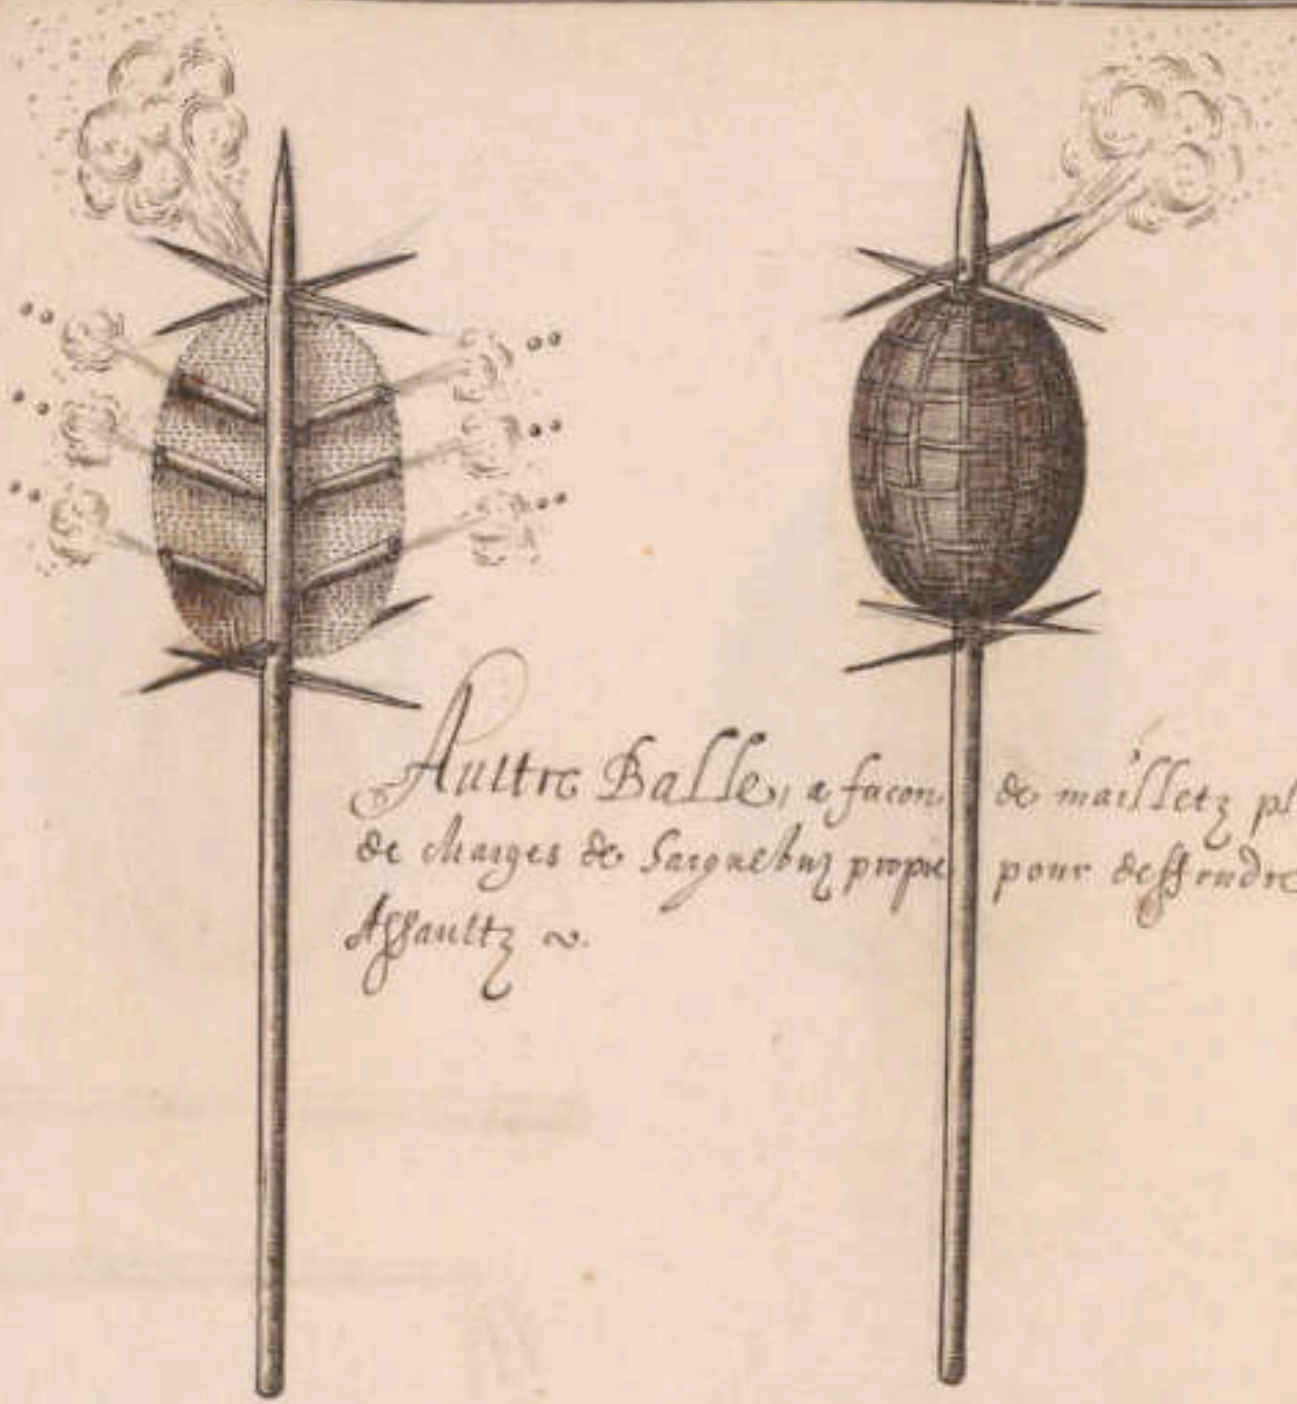 Aultre Balle, a facon de mailletz pl
de charges de harquebuz propre pour deffendre
Assaultz